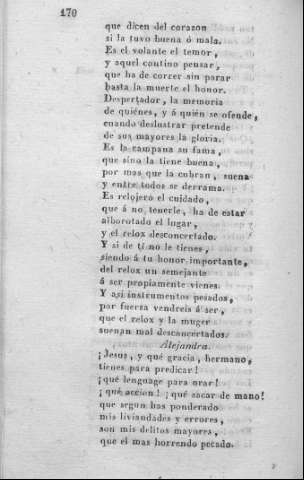 170
que dicen del corazon
si la tuvo buena ó mala.
Es el volante el temor,
y aquel contino pensar,
que ha de correr sin parar
hasta la muerte el honor.
Despertador, la memoria
de quiénes, y á quién se ofende,
cuando deslustrar pretende
de sus mayores la gloria.
Es la campana su fama,
que sino la tiene buena,
por mas que la cubran, suena
y entre todos se derrama.
Es relojero el cuidado,
que á no tenerle, ha de estar
alborotado el lugar,
y el relox desconcertado.
Y si de tí no le tienes,
siendo á tu honor importante,
del relox un semejante
á ser propiamente vienes.
Y asi instrumentos pesados,
por fuerza vendreis á ser,
que el relox y la muger
suenan mal desconcertados.
Alejandra.
¡Jesus, y qué gracia, hermano,
tienes para predicar!
¡qué lenguage para orar!
¡qué accion! ¡qué sacar de mano!
que segun has ponderado
mis liviandades y errores,
son mis delitos mayores,
que el mas horrendo pecado.